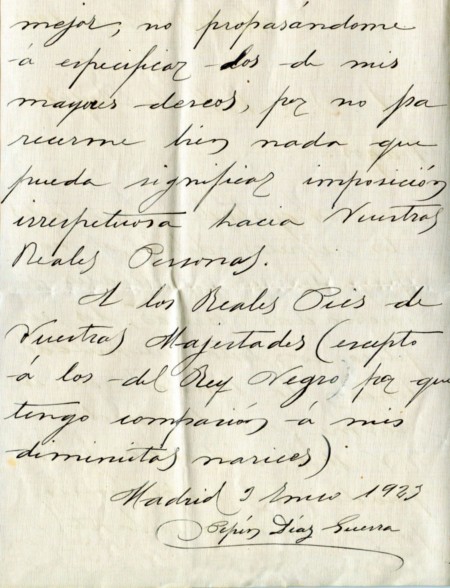 mejor, no propasándome
á especificar los de mis
mayores deseos, por no pa
recerme bien nada que
pueda significar imposición
irrespetuosa hacia Vuestras
Reales Personas.
A los Reales Pies de
Vuestras Majestades (escepto
á los del Rey Negro, por que
tengo compasión á mis
diminutas narices)
Madrid 3 Enero 1923
Pepín Díaz Guerra